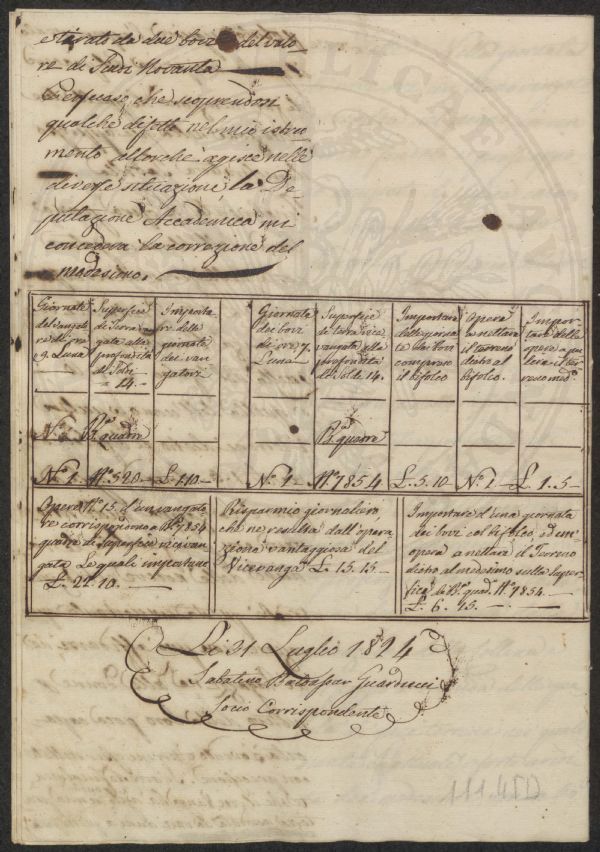 e tirato da due bovi del valo-
re di Scudi Novanta
E in caso che scoprendosi
qualche difetto nel mio istru-
mento allorchè agisce nelle
diverse situazioni, la De-
putazione Accademica mi
conceda la correzione del
medesimo.
Giornate
di ore 9.
L'una
Superfice
di terra
gata alla
profondità
di Soldi
14.
Importa
re delle
giornate
dei van
gatori
Giornate
dei bovi
di ore 7.
L'una
Superfice
di terra vice
vangata alla
profondità
di Sol. di 14.
Importare
della giorna
ta dei bovi
compreso
il bifolco
Opera
a nettare
il terreno
dietro al
bifolco.
Impor-
tare della
opera a pu-
lire il ter-
reno med.º
Bª quadre
Bª quadre
Nº 1
Nº 520
£. 1.10
Nº 1
Nº 7854
£. 5.10
Nº 1
£. 1.5
Opere Nº 15. d'un vangato
re corrispondono a Bª 7854
quadre di superfice vicevan
gata Le quali importano
£. 22.10.
Risparmio giornaliero
che ne resulta dall'opera
zione vantaggiosa del
Vicevanga £. 15.15
Importare d'una giornata
dei bovi col bifolco, ed un'
opera a nettare il Terreno
dietro al medesimo sulla Super
fice di Bª quad. Nº 7854.
£. 6. 15.
Li 31 Luglio 1824
Sabatino Baldassar Guarducci
Socio Corrispondente
111 450